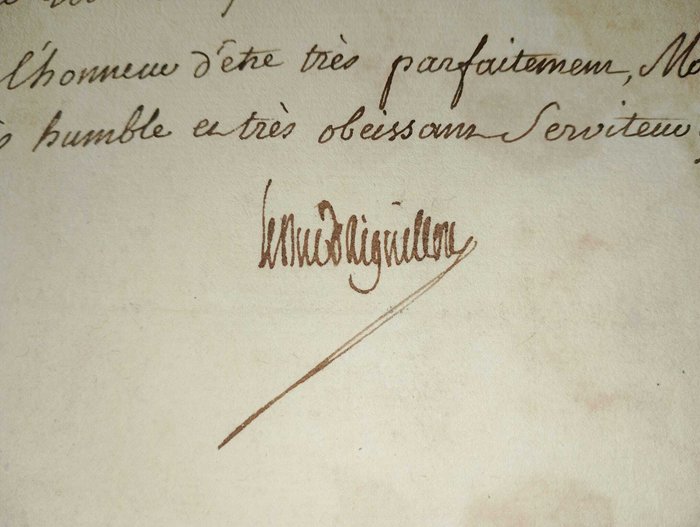 l'honneur d'être très parfaitement, Mo
s humble et très obeissant Serviteur
le Duc d'aiguillon